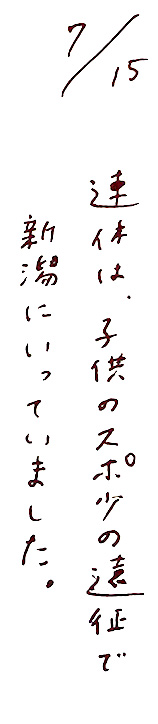 7/15
連休は、子供のスポ少の遠征で
新潟にいっていました。